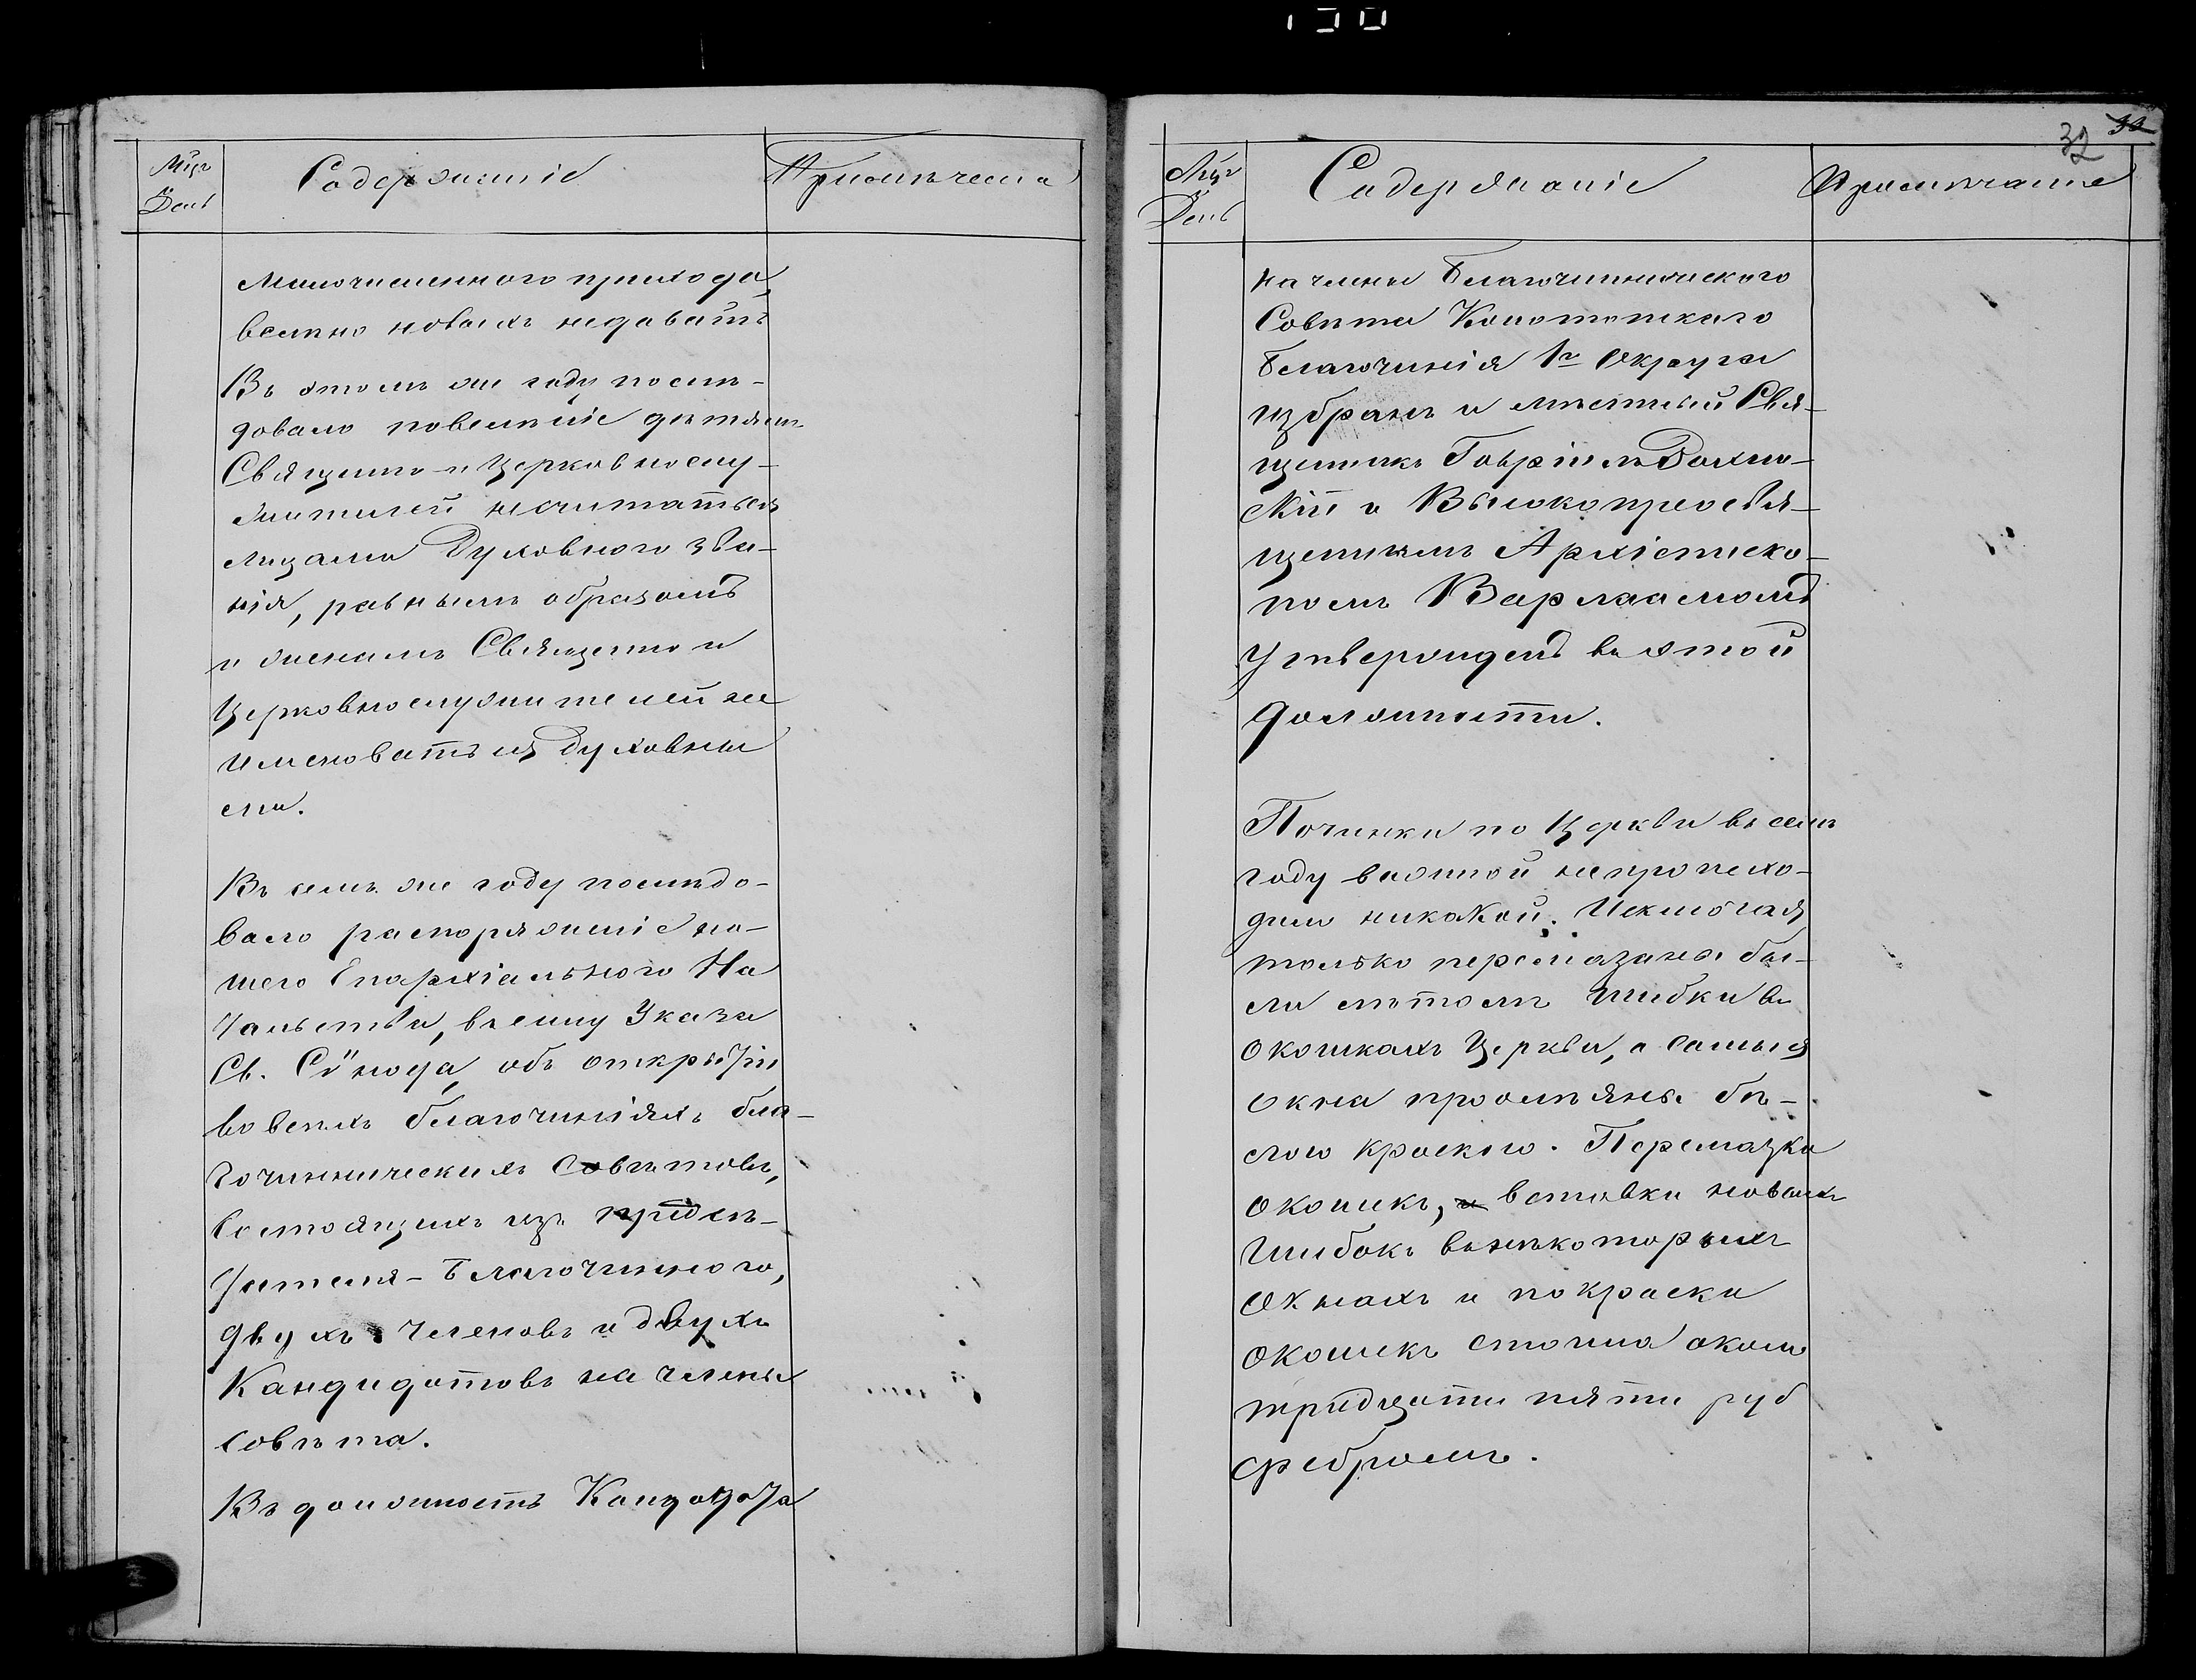 Мцъ и День
Содержаніе
Примѣчаніе
малочисленного прихода,
вѣстно новыхъ недавать
Въ этомъ же году послѣ-
довало повелѣніе дѣтямъ
Священно- и Церковнослу-
жителей несчитаться
лицами Духовного зва-
нія, равнымъ образомъ
и женамъ Священно и
Церковнослужителей не
именоваться Духовны
ми.
Въ семъ же году послѣдо-
вало распоряженіе на-
шего Епархіального На
чальства, въ силу Указа
Св. Сѵнода, объ открытіи
во всѣхъ благочиніяхъ бла-
гочинническихъ совѣтовъ,
состоящихъ изъ предсѣ-
дателя- Благочинного,
двухъ членовъ и двухъ
Кандидатовъ на члены
совѣта.
Въ должность Кандидата
32
Мцъ и День
Содержаніе
Примѣчаніе
на члены Благочинническаго
Совѣта Конотопскаго
Благочинія 1го Округа
избранъ и мѣстный Свя-
щенникъ Гавріилъ
и Высокопреосвя-
щеннымъ Архіеписко-
помъ Варлаамомъ
Утвержденъ въ этой
должности.
Починки по Церкви въ семъ
году важной непроисхо-
дило никакой. Исключая
только перемазаны бы-
ли лѣтомъ шибки въ
окошкахъ Церкви, а самыя
окна бѣ-
лою краскою. Перемазка
окошекъ, вставка новыхъ
шибокъ въ нѣкоторыхъ
окнахъ и покраска
окошекъ стоила около
тридцати пяти руб
сребромъ.